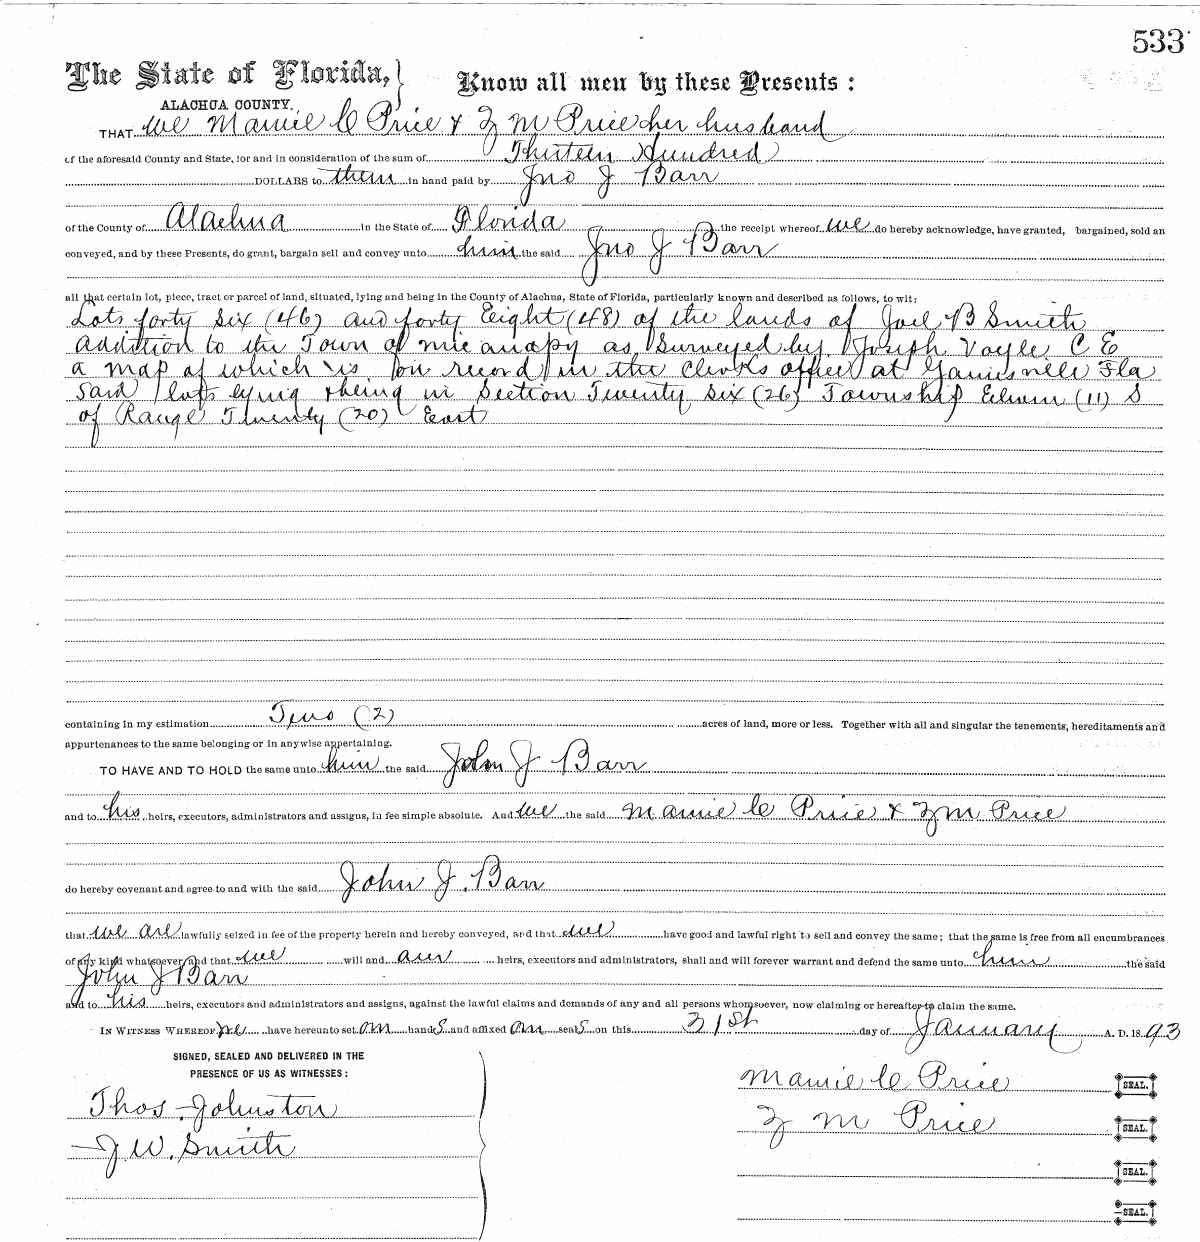 533
The State of Florida,
Know all men by these Presents :
ALACHUA COUNTY.
THAT we Mamie C Price & Z M Price her husband
of the aforesaid County and State, for and in consideration of the sum of Thirteen Hundred
DOLLARS to them in hand paid by Jno J Barr
of the County of Alachua in the State of Florida the receipt whereof we do hereby acknowledge, have granted, bargained, sold an
conveyed, and by these Presents, do grant, bargain sell and convey unto him the said Jno J Barr
all that certain lot, piece, tract or parcel of land, situated, lying and being in the County of Alachua, State of Florida, particularly known and described as follows, to wit:
Lots forty six (46) and forty Eight (48) of the lands of Joel B Smith
addition to the Town of Micanopy as Surveyed by Joseph Voyle C E
a map of which is on record in the Clerks office at Gainesville Fla
Said lots lying & being in Section Twenty Six (26) Township Eleven (11) S
of Range Twenty (20) East
containing in my estimation Two (2) acres of land, more or less. Together with all and singular the tenements, hereditaments and
appurtenances to the same belonging or in anywise appertaining.
TO HAVE AND TO HOLD the same unto him the said John J Barr
and to his heirs, executors, administrators and assigns, in fee simple absolute. And we the said Mamie C Price & Z M Price
do hereby covenant and agree to and with the said John J. Barr
that we are lawfully seized in fee of the property herein and hereby conveyed, and that we have good and lawful right to sell and convey the same; that the same is free from all encumbrances
of any kind whatsoever, and that we will and our heirs, executors and administrators, shall and will forever warrant and defend the same unto him the said
John J Barr
and to his heirs, executors and administrators and assigns, against the lawful claims and demands of any and all persons whomsoever, now claiming or hereafter to claim the same.
IN WITNESS WHEREOF we have hereunto set our hands and affixed our seals on this 31st day of January A. D. 1893
SIGNED, SEALED AND DELIVERED IN THE
PRESENCE OF US AS WITNESSES :
Mamie C Price SEAL.
Thos Johnston
Z M Price SEAL.
J W. Smith
SEAL.
SEAL.